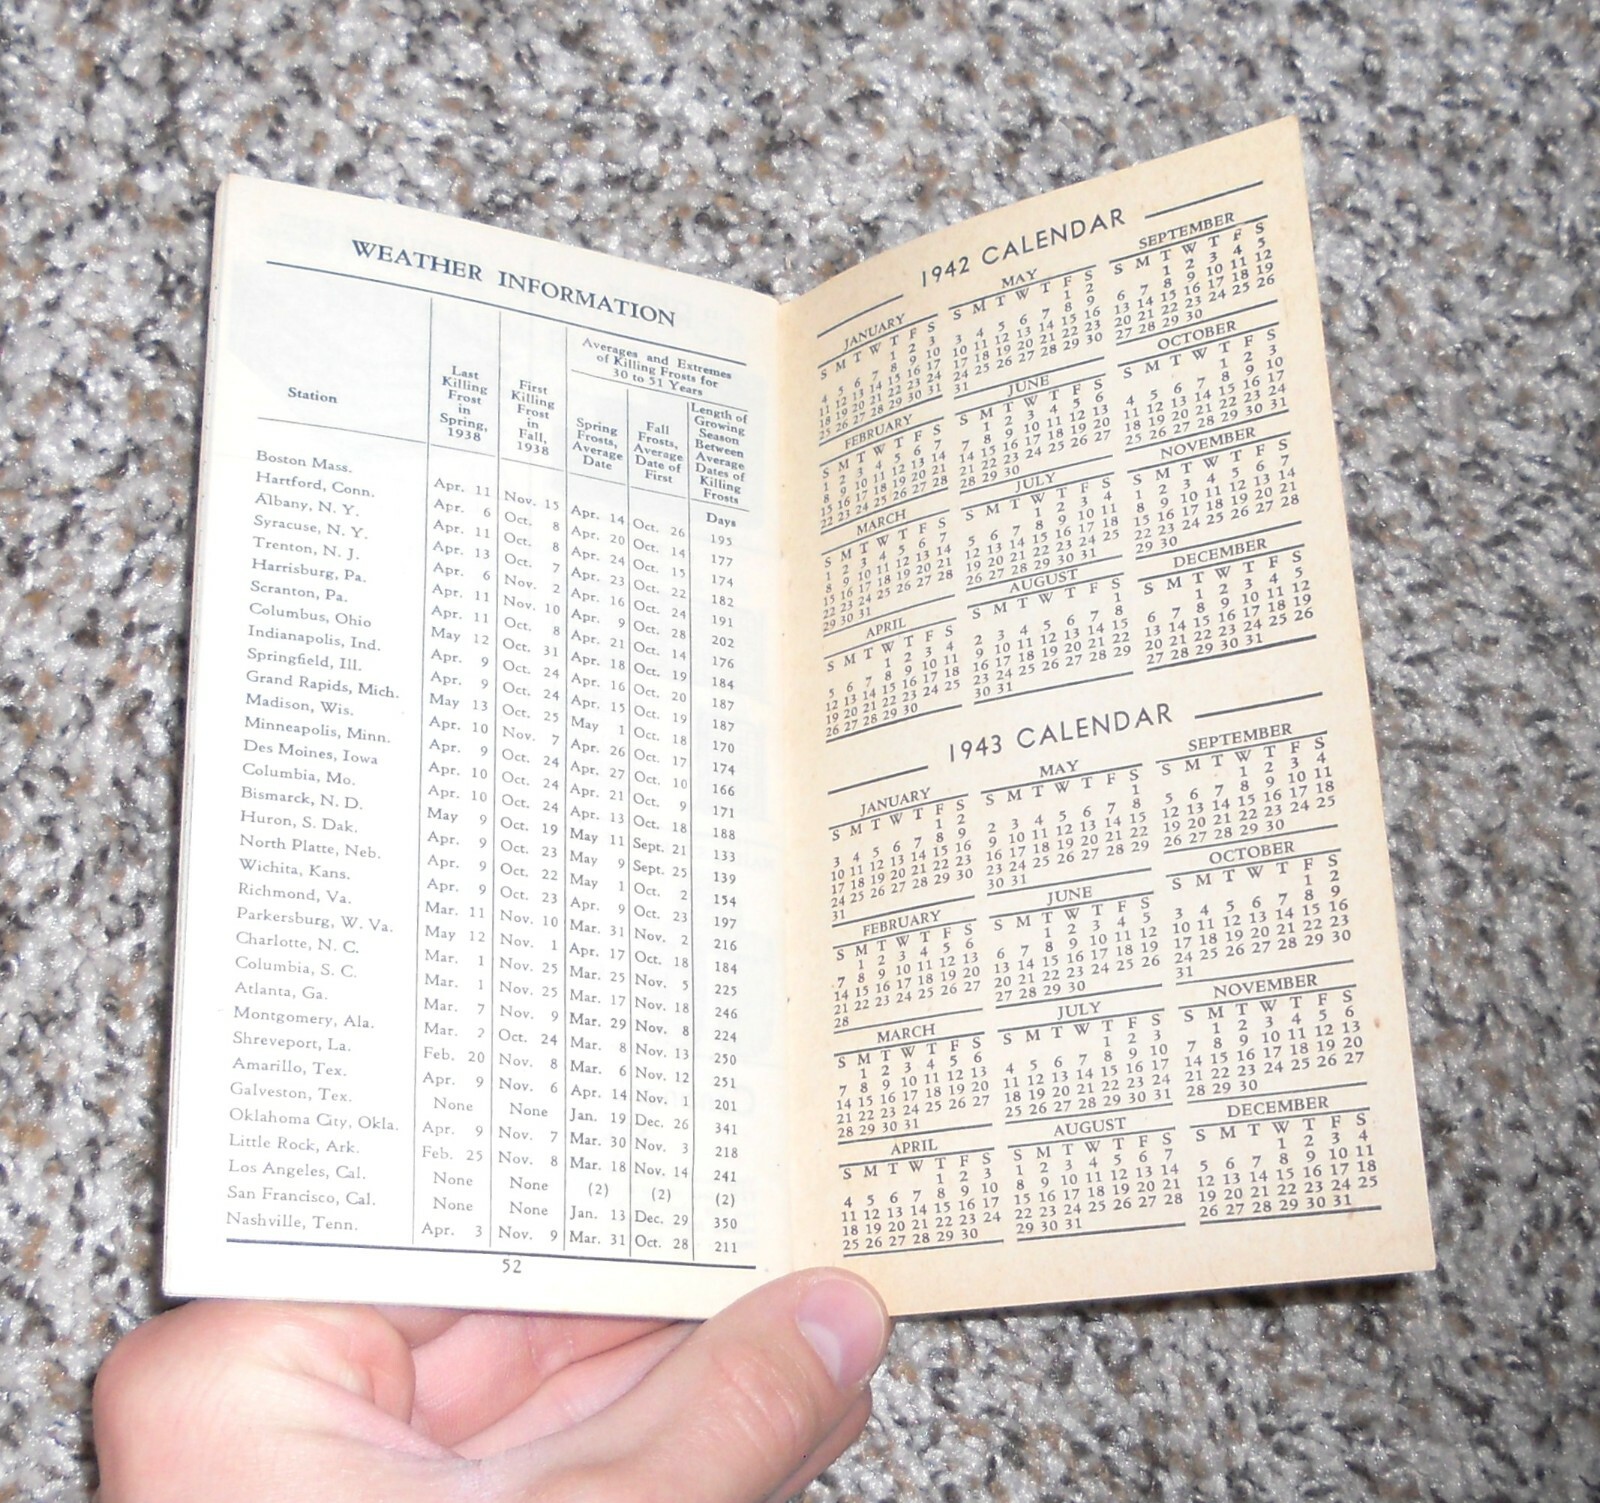 WEATHER INFORMATION
Station
Last Killing Frost in Spring, 1938
First Killing Frost in Fall, 1938
Averages and Extremes of Killing Frosts for 30 to 51 Years
Spring Frosts, Average Date
Fall Frosts, Average Date of First
Length of Growing Season Between Average Dates of Killing Frosts
Days
Boston Mass. Apr. 11 Nov. 15 Apr. 14 Oct. 26 195
Hartford, Conn. Apr. 6 Oct. 8 Apr. 20 Oct. 14 177
Albany, N. Y. Apr. 11 Oct. 8 Apr. 24 Oct. 15 174
Syracuse, N. Y. Apr. 13 Oct. 7 Apr. 23 Oct. 22 182
Trenton, N. J. Apr. 6 Nov. 2 Apr. 16 Oct. 24 191
Harrisburg, Pa. Apr. 11 Nov. 10 Apr. 9 Oct. 28 202
Scranton, Pa. Apr. 11 Oct. 8 Apr. 21 Oct. 14 176
Columbus, Ohio May 12 Oct. 31 Apr. 18 Oct. 19 184
Indianapolis, Ind. Apr. 9 Oct. 24 Apr. 16 Oct. 20 187
Springfield, Ill. Apr. 9 Oct. 24 Apr. 15 Oct. 19 187
Grand Rapids, Mich. May 13 Oct. 25 May 1 Oct. 18 170
Madison, Wis. Apr. 10 Nov. 7 Apr. 26 Oct. 17 174
Minneapolis, Minn. Apr. 9 Oct. 24 Apr. 27 Oct. 10 166
Des Moines, Iowa Apr. 10 Oct. 24 Apr. 21 Oct. 9 171
Columbia, Mo. Apr. 10 Oct. 24 Apr. 13 Oct. 18 188
Bismarck, N. D. May 9 Oct. 19 May 11 Sept. 21 133
Huron, S. Dak. Apr. 9 Oct. 23 May 9 Sept. 25 139
North Platte, Neb. Apr. 9 Oct. 22 May 1 Oct. 2 154
Wichita, Kans. Apr. 9 Oct. 23 Apr. 9 Oct. 23 197
Richmond, Va. Mar. 11 Nov. 10 Mar. 31 Nov. 2 216
Parkersburg, W. Va. May 12 Nov. 1 Apr. 17 Oct. 18 184
Charlotte, N. C. Mar. 1 Nov. 25 Mar. 25 Nov. 5 225
Columbia, S. C. Mar. 1 Nov. 25 Mar. 17 Nov. 18 246
Atlanta, Ga. Mar. 7 Nov. 9 Mar. 29 Nov. 8 224
Montgomery, Ala. Mar. 2 Oct. 24 Mar. 8 Nov. 13 250
Shreveport, La. Feb. 20 Nov. 8 Mar. 6 Nov. 12 251
Amarillo, Tex. Apr. 9 Nov. 6 Apr. 14 Nov. 1 201
Galveston, Tex. None None Jan. 19 Dec. 26 341
Oklahoma City, Okla. Apr. 9 Nov. 7 Mar. 30 Nov. 3 218
Little Rock, Ark. Feb. 25 Nov. 8 Mar. 18 Nov. 14 241
Los Angeles, Cal. None None (2) (2) (2)
San Francisco, Cal. None None Jan. 13 Dec. 29 350
Nashville, Tenn. Apr. 3 Nov. 9 Mar. 31 Oct. 28 211
52
1942 CALENDAR
JANUARY
S M T W T F S
1 2 3
4 5 6 7 8 9 10
11 12 13 14 15 16 17
18 19 20 21 22 23 24
25 26 27 28 29 30 31
FEBRUARY
S M T W T F S
1 2 3 4 5 6 7
8 9 10 11 12 13 14
15 16 17 18 19 20 21
22 23 24 25 26 27 28
MARCH
S M T W T F S
1 2 3 4 5 6 7
8 9 10 11 12 13 14
15 16 17 18 19 20 21
22 23 24 25 26 27 28
29 30 31
APRIL
S M T W T F S
1 2 3 4
5 6 7 8 9 10 11
12 13 14 15 16 17 18
19 20 21 22 23 24 25
26 27 28 29 30
MAY
S M T W T F S
1 2
3 4 5 6 7 8 9
10 11 12 13 14 15 16
17 18 19 20 21 22 23
24 25 26 27 28 29 30
31
JUNE
S M T W T F S
1 2 3 4 5 6
7 8 9 10 11 12 13
14 15 16 17 18 19 20
21 22 23 24 25 26 27
28 29 30
JULY
S M T W T F S
1 2 3 4
5 6 7 8 9 10 11
12 13 14 15 16 17 18
19 20 21 22 23 24 25
26 27 28 29 30 31
AUGUST
S M T W T F S
1
2 3 4 5 6 7 8
9 10 11 12 13 14 15
16 17 18 19 20 21 22
23 24 25 26 27 28 29
30 31
SEPTEMBER
S M T W T F S
1 2 3 4 5
6 7 8 9 10 11 12
13 14 15 16 17 18 19
20 21 22 23 24 25 26
27 28 29 30
OCTOBER
S M T W T F S
1 2 3
4 5 6 7 8 9 10
11 12 13 14 15 16 17
18 19 20 21 22 23 24
25 26 27 28 29 30 31
NOVEMBER
S M T W T F S
1 2 3 4 5 6 7
8 9 10 11 12 13 14
15 16 17 18 19 20 21
22 23 24 25 26 27 28
29 30
DECEMBER
S M T W T F S
1 2 3 4 5
6 7 8 9 10 11 12
13 14 15 16 17 18 19
20 21 22 23 24 25 26
27 28 29 30 31
1943 CALENDAR
JANUARY
S M T W T F S
1 2
3 4 5 6 7 8 9
10 11 12 13 14 15 16
17 18 19 20 21 22 23
24 25 26 27 28 29 30
31
FEBRUARY
S M T W T F S
1 2 3 4 5 6
7 8 9 10 11 12 13
14 15 16 17 18 19 20
21 22 23 24 25 26 27
28
MARCH
S M T W T F S
1 2 3 4 5 6
7 8 9 10 11 12 13
14 15 16 17 18 19 20
21 22 23 24 25 26 27
28 29 30 31
APRIL
S M T W T F S
1 2 3
4 5 6 7 8 9 10
11 12 13 14 15 16 17
18 19 20 21 22 23 24
25 26 27 28 29 30
MAY
S M T W T F S
1
2 3 4 5 6 7 8
9 10 11 12 13 14 15
16 17 18 19 20 21 22
23 24 25 26 27 28 29
30 31
JUNE
S M T W T F S
1 2 3 4 5
6 7 8 9 10 11 12
13 14 15 16 17 18 19
20 21 22 23 24 25 26
27 28 29 30
JULY
S M T W T F S
1 2 3
4 5 6 7 8 9 10
11 12 13 14 15 16 17
18 19 20 21 22 23 24
25 26 27 28 29 30 31
AUGUST
S M T W T F S
1 2 3 4 5 6 7
8 9 10 11 12 13 14
15 16 17 18 19 20 21
22 23 24 25 26 27 28
29 30 31
SEPTEMBER
S M T W T F S
1 2 3 4
5 6 7 8 9 10 11
12 13 14 15 16 17 18
19 20 21 22 23 24 25
26 27 28 29 30
OCTOBER
S M T W T F S
1 2
3 4 5 6 7 8 9
10 11 12 13 14 15 16
17 18 19 20 21 22 23
24 25 26 27 28 29 30
31
NOVEMBER
S M T W T F S
1 2 3 4 5 6
7 8 9 10 11 12 13
14 15 16 17 18 19 20
21 22 23 24 25 26 27
28 29 30
DECEMBER
S M T W T F S
1 2 3 4
5 6 7 8 9 10 11
12 13 14 15 16 17 18
19 20 21 22 23 24 25
26 27 28 29 30 31